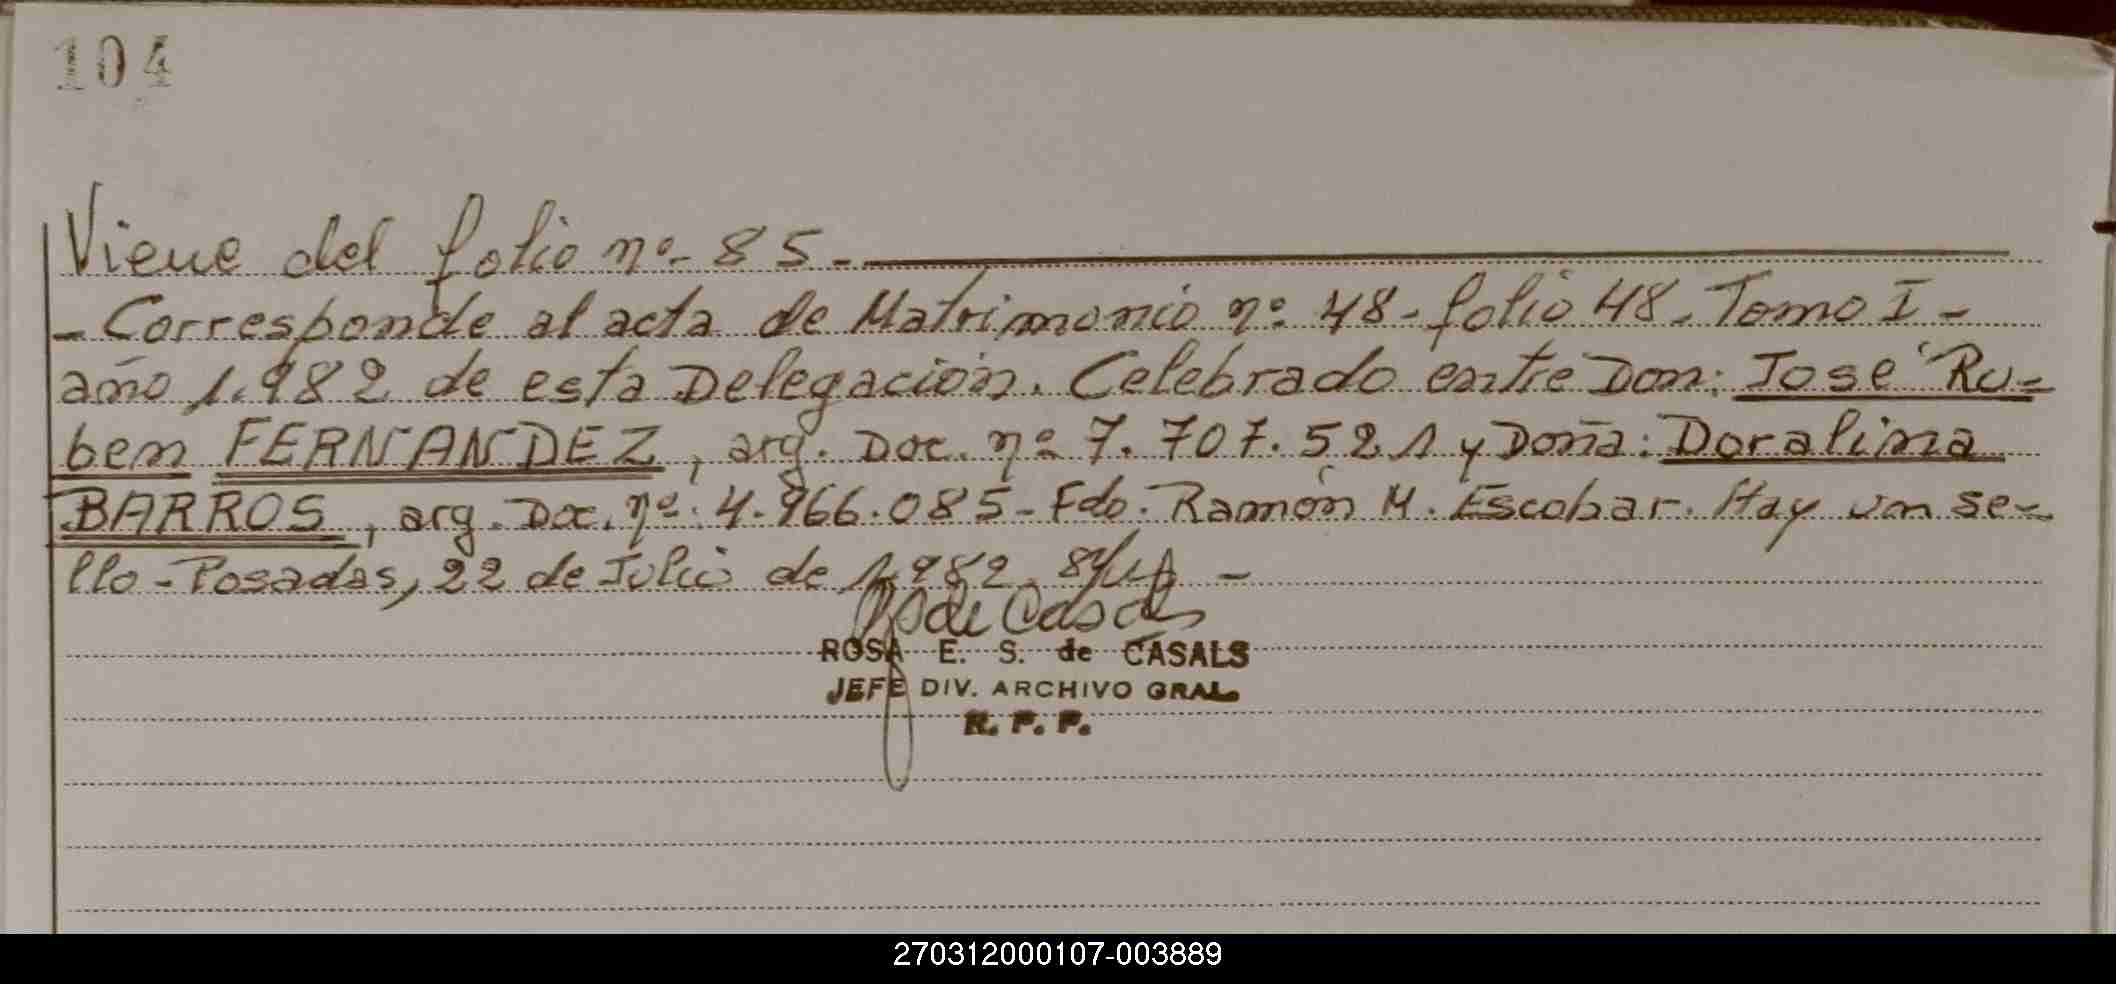 104
Viene del folio nº- 85.-
- Corresponde al acta de Matrimonio nº 48- folio 48. Tomo I -
año 1.982 de esta Delegación. Celebrado entre Don: José Ru-
ben FERNANDEZ, arg. Doc. nº 7.707.521 y Doña: Doralina
BARROS, arg. Doc. nº. 4.966.085- Fdo. Ramón M. Escobar. Hay un se-
llo - Posadas, 22 de Julio de 1.982. -
ROSA E. S. de CASALS
JEFE DIV. ARCHIVO GRAL
R. P. P.
270312000107-003889